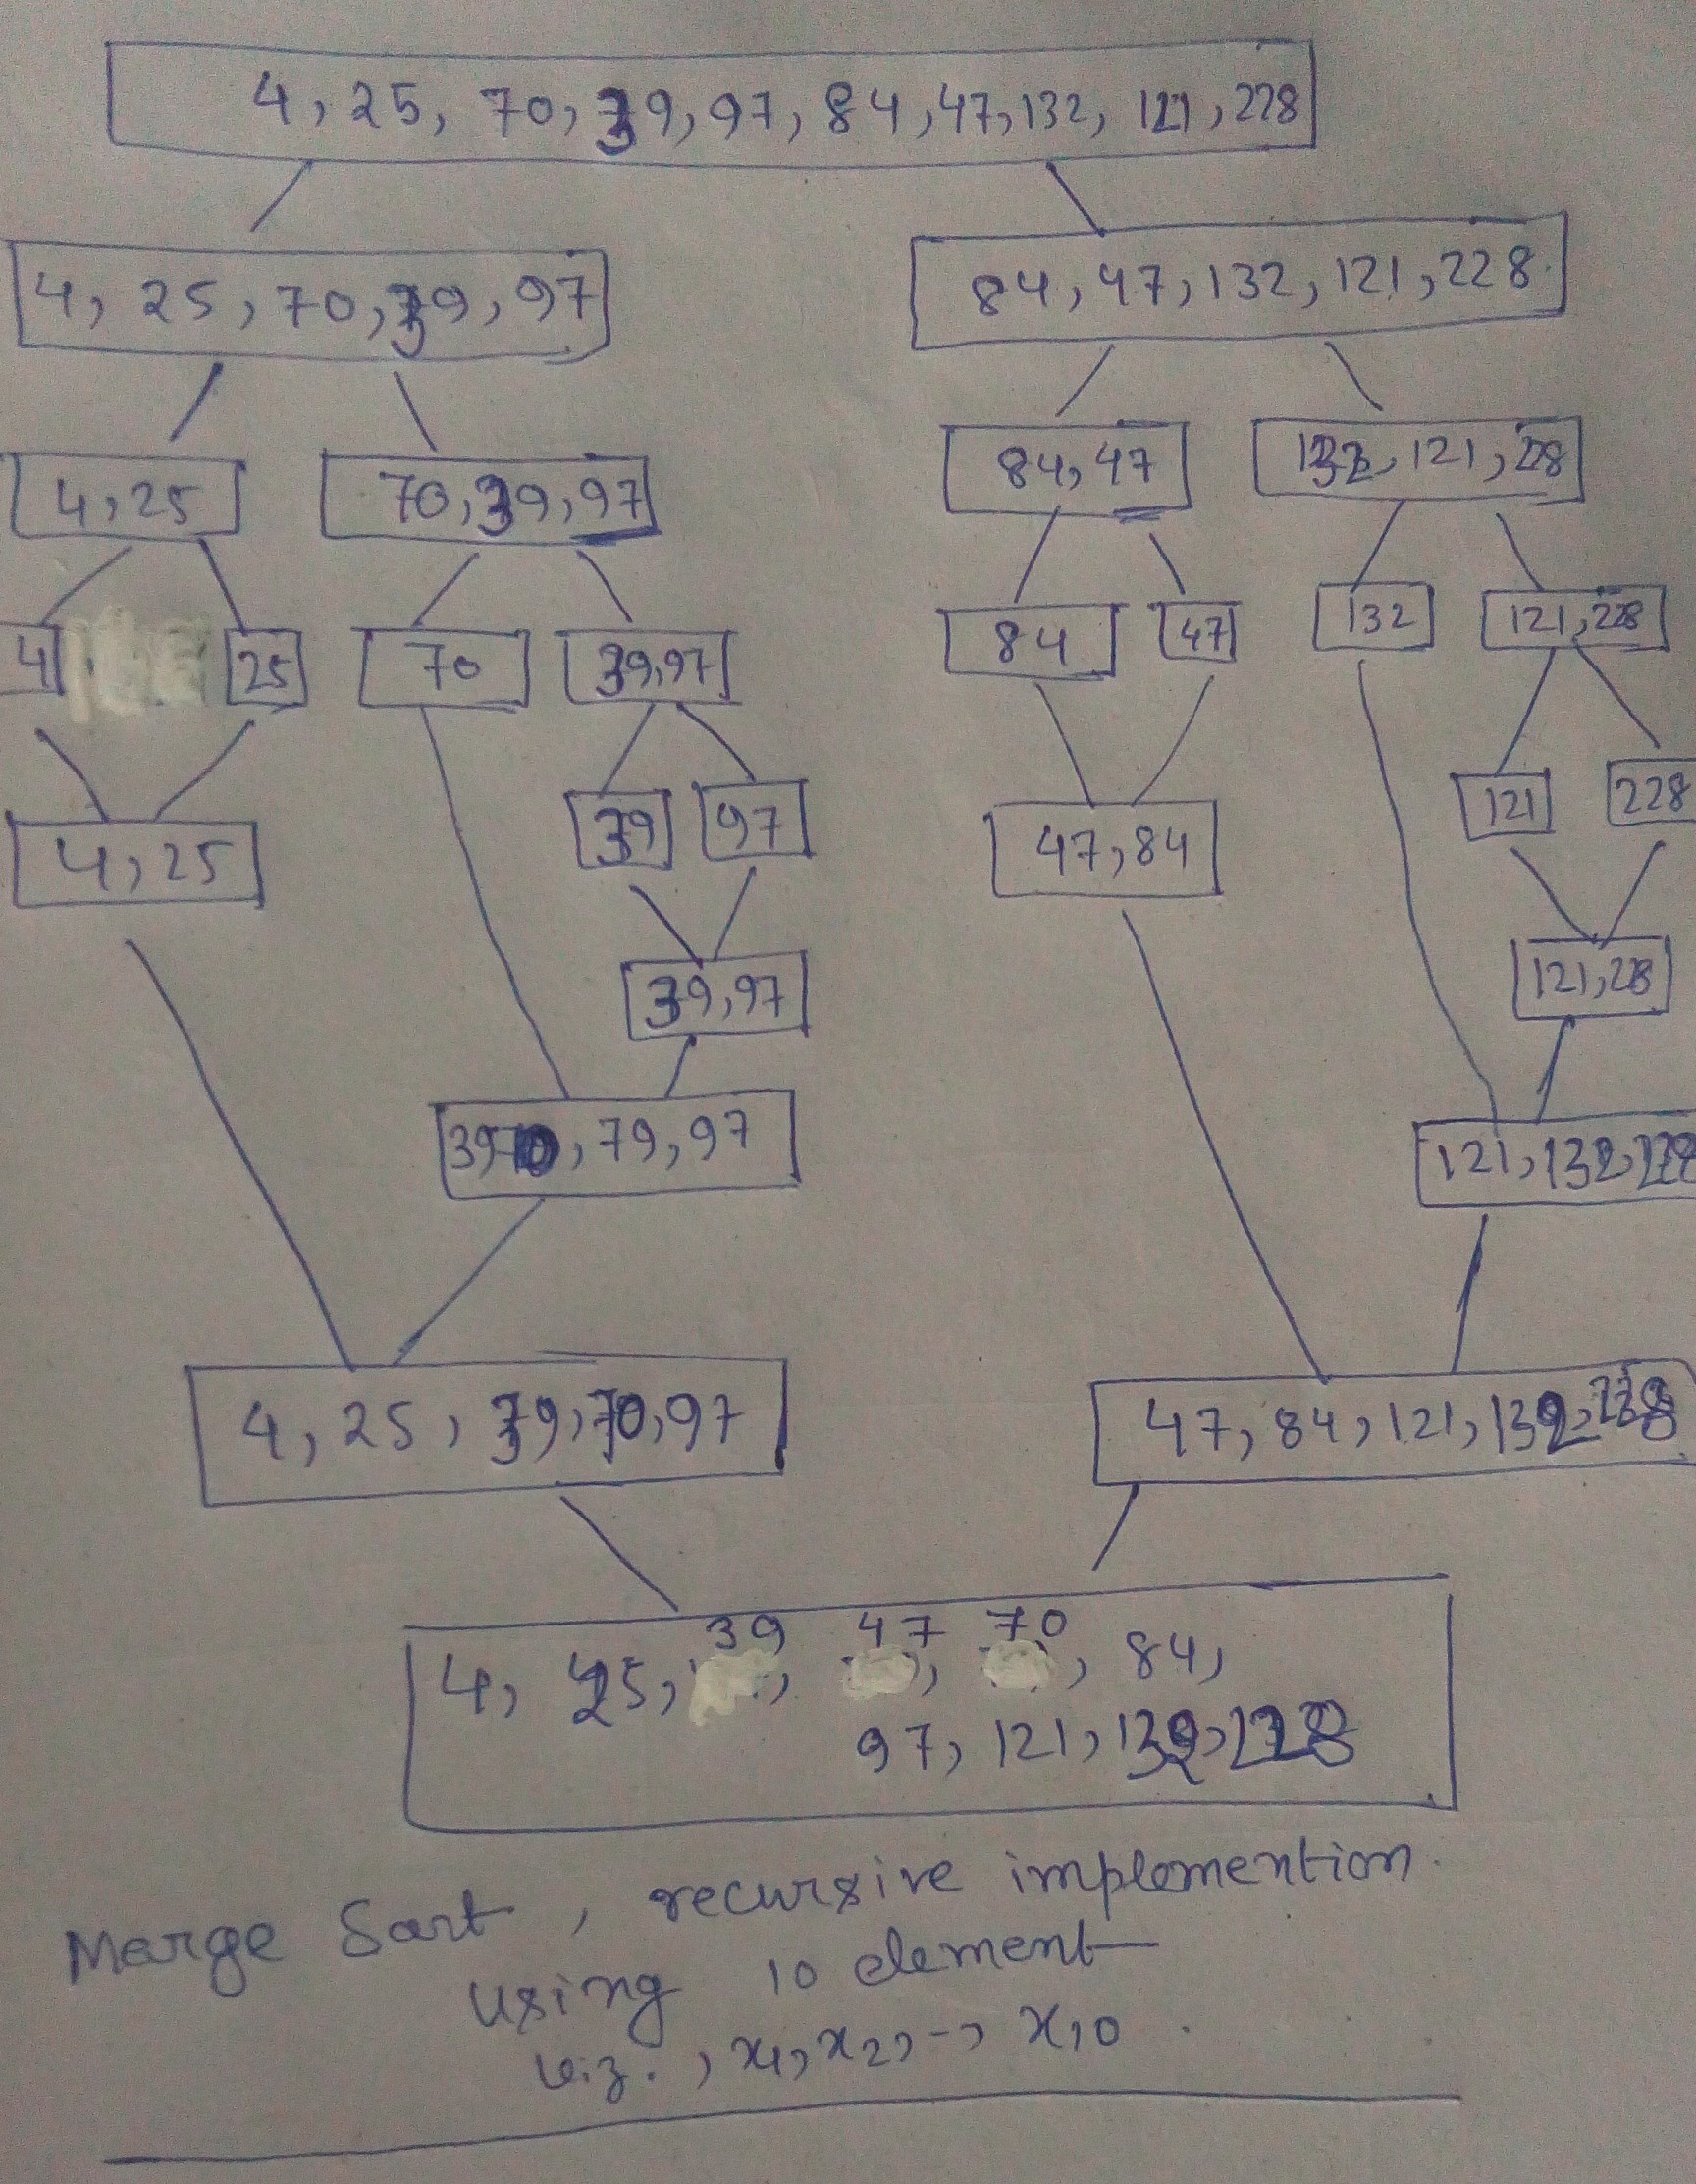 4, 25, 70, 39, 97, 84, 47, 132, 121, 228
4, 25, 70, 39, 97
84, 47, 132, 121, 228
4, 25
70, 39, 97
84, 47
132, 121, 228
4
25
70
39, 97
84
47
132
121, 228
39
97
121
228
4, 25
47, 84
39, 97
121, 228
39, 79, 97
121, 132, 228
4, 25, 39, 70, 97
47, 84, 121, 132, 228
4, 25, 39, 47, 70, 84,
97, 121, 132, 228
Merge Sort, recursive implemention.
using 10 element
viz., x1, x2, -, x10.